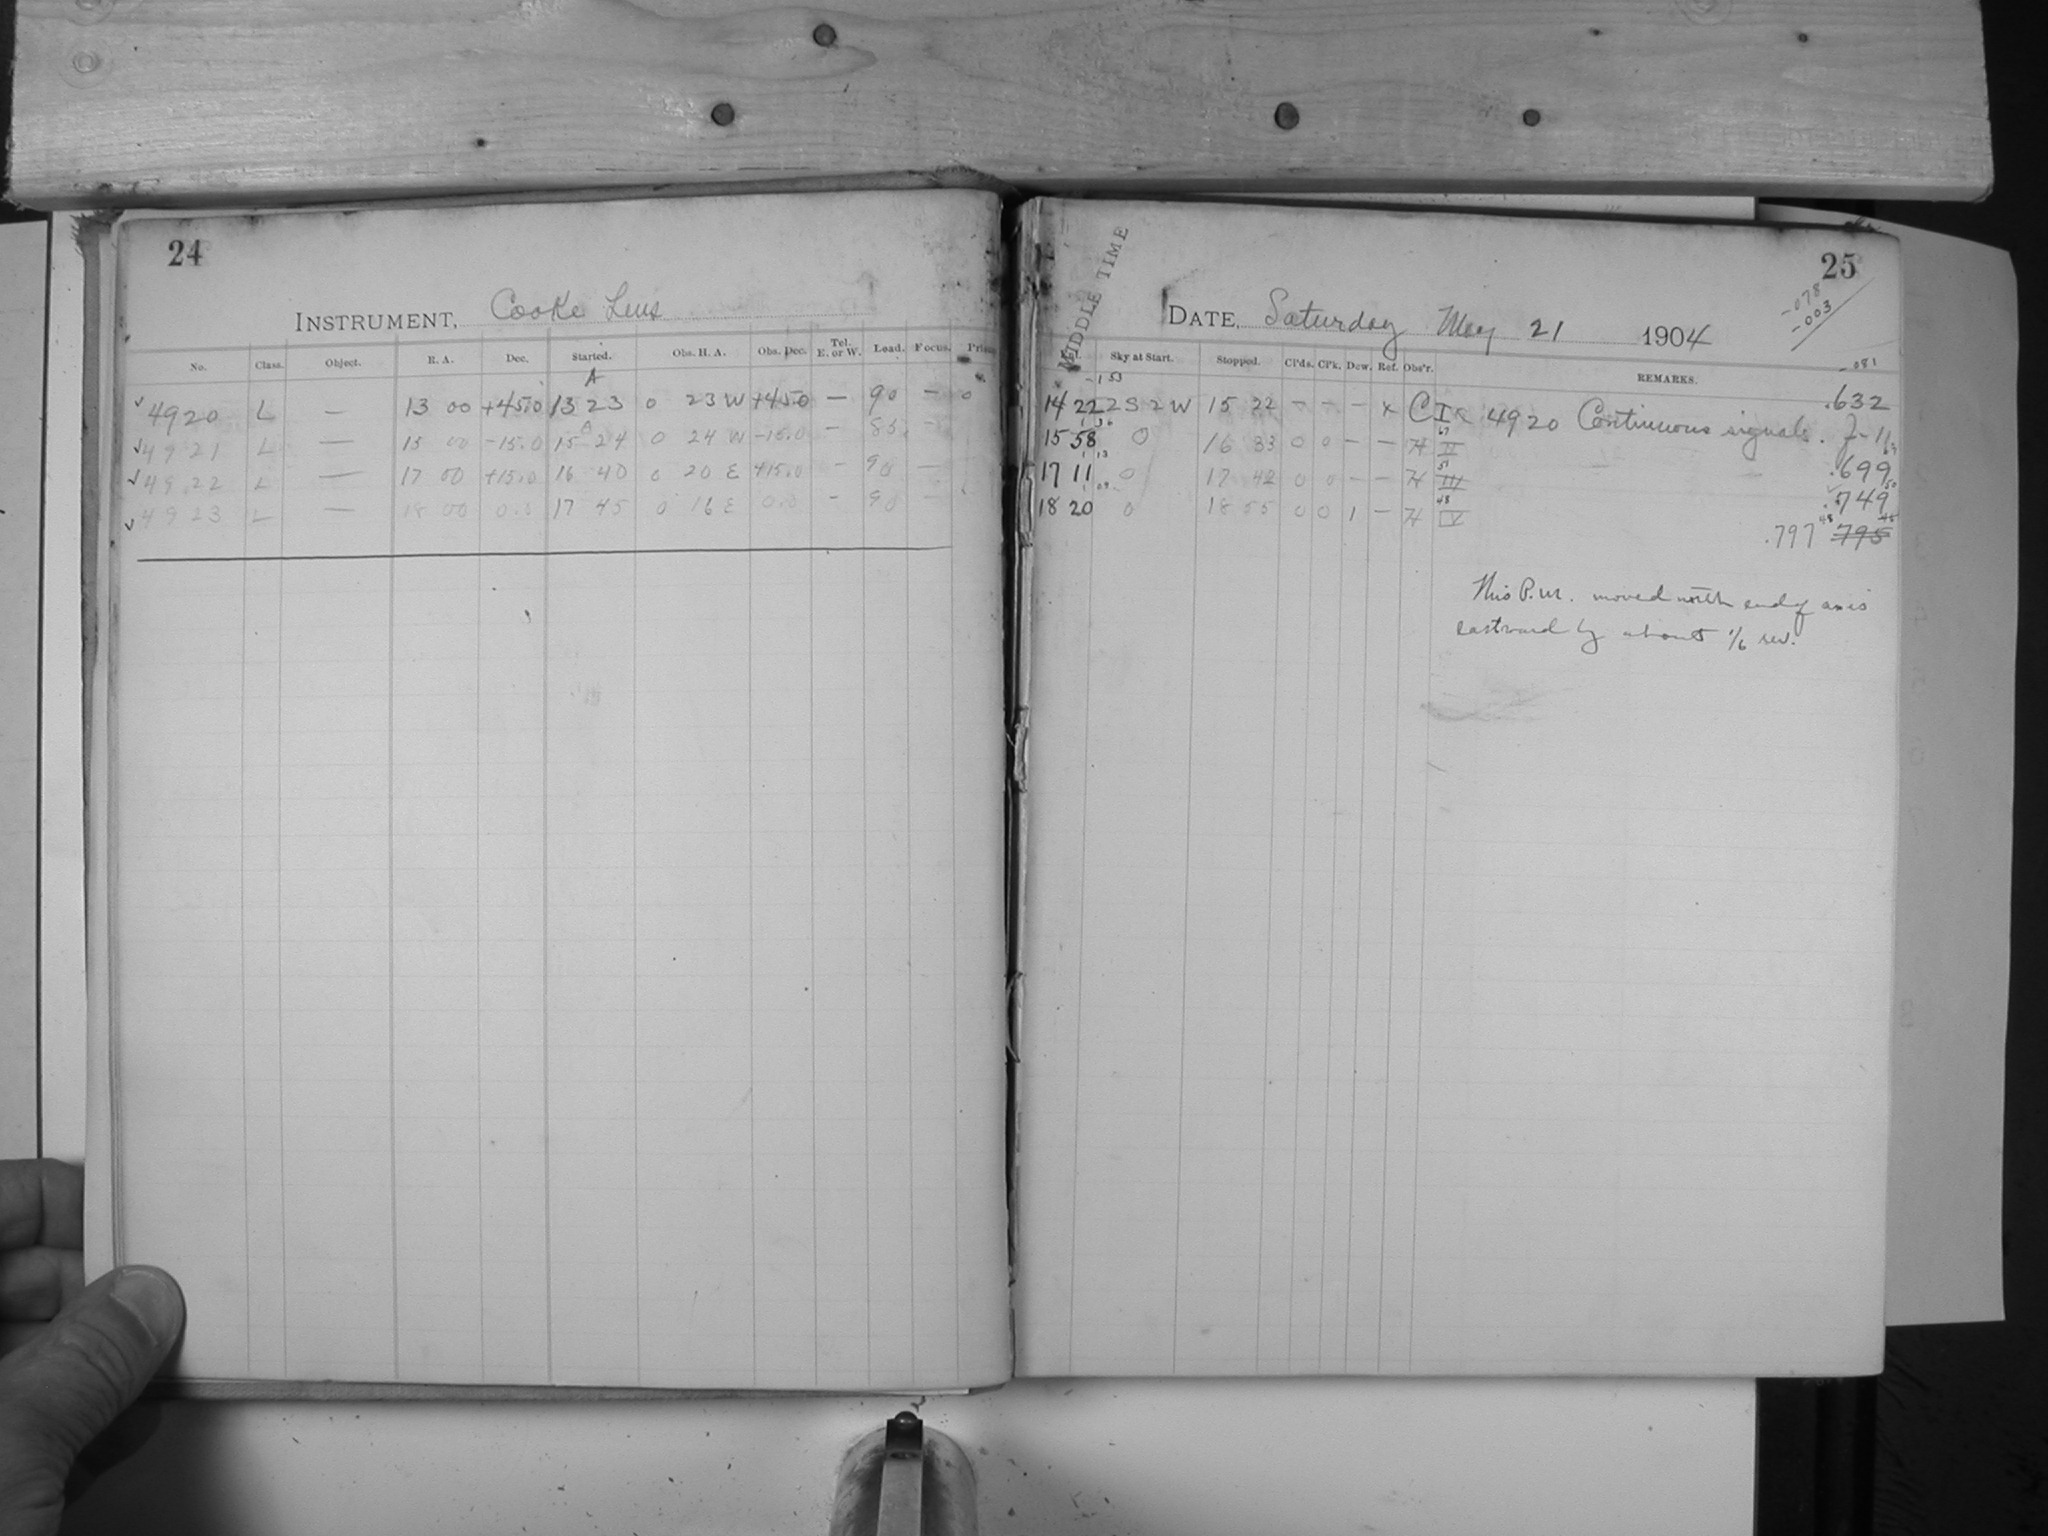 24
INSTRUMENT, Cooke Lens
No. Class. Object. R. A. Dec. Started. Obs. H. A. Obs. Dec. Tel. E. or W. Lead. Focus.
A
4920 L — 13 00 +45.0 13 23 0 23 W +45.0 — 90 — 0
4921 L — 15 00 -15.0 15 24 0 24 W -15.0 — 85 —
4922 L — 17 00 +15.0 16 40 0 20 E +15.0 — 90 —
4923 L — 18 00 0.0 17 45 0 16 E 0.0 - 90 -
25
MIDDLE TIME
-078
-003
DATE, Saturday May 21 1904
-081
Sky at Start. Stopped. Cl'ds. Cl'k. Dew. Ref. Obs'r. REMARKS.
1 53
14 22 2 S 2 W 15 22 - - - x C I 4920 Continuous signals. .632
1 36
15 58 0 16 33 0 0 — — H II .699
1 13
17 11 0 17 42 0 0 — — H III .749
1 09
18 20 0 18 55 0 0 1 — H IV .797 795
This P.M. moved north end of axis
eastward by about 1/6 rev.